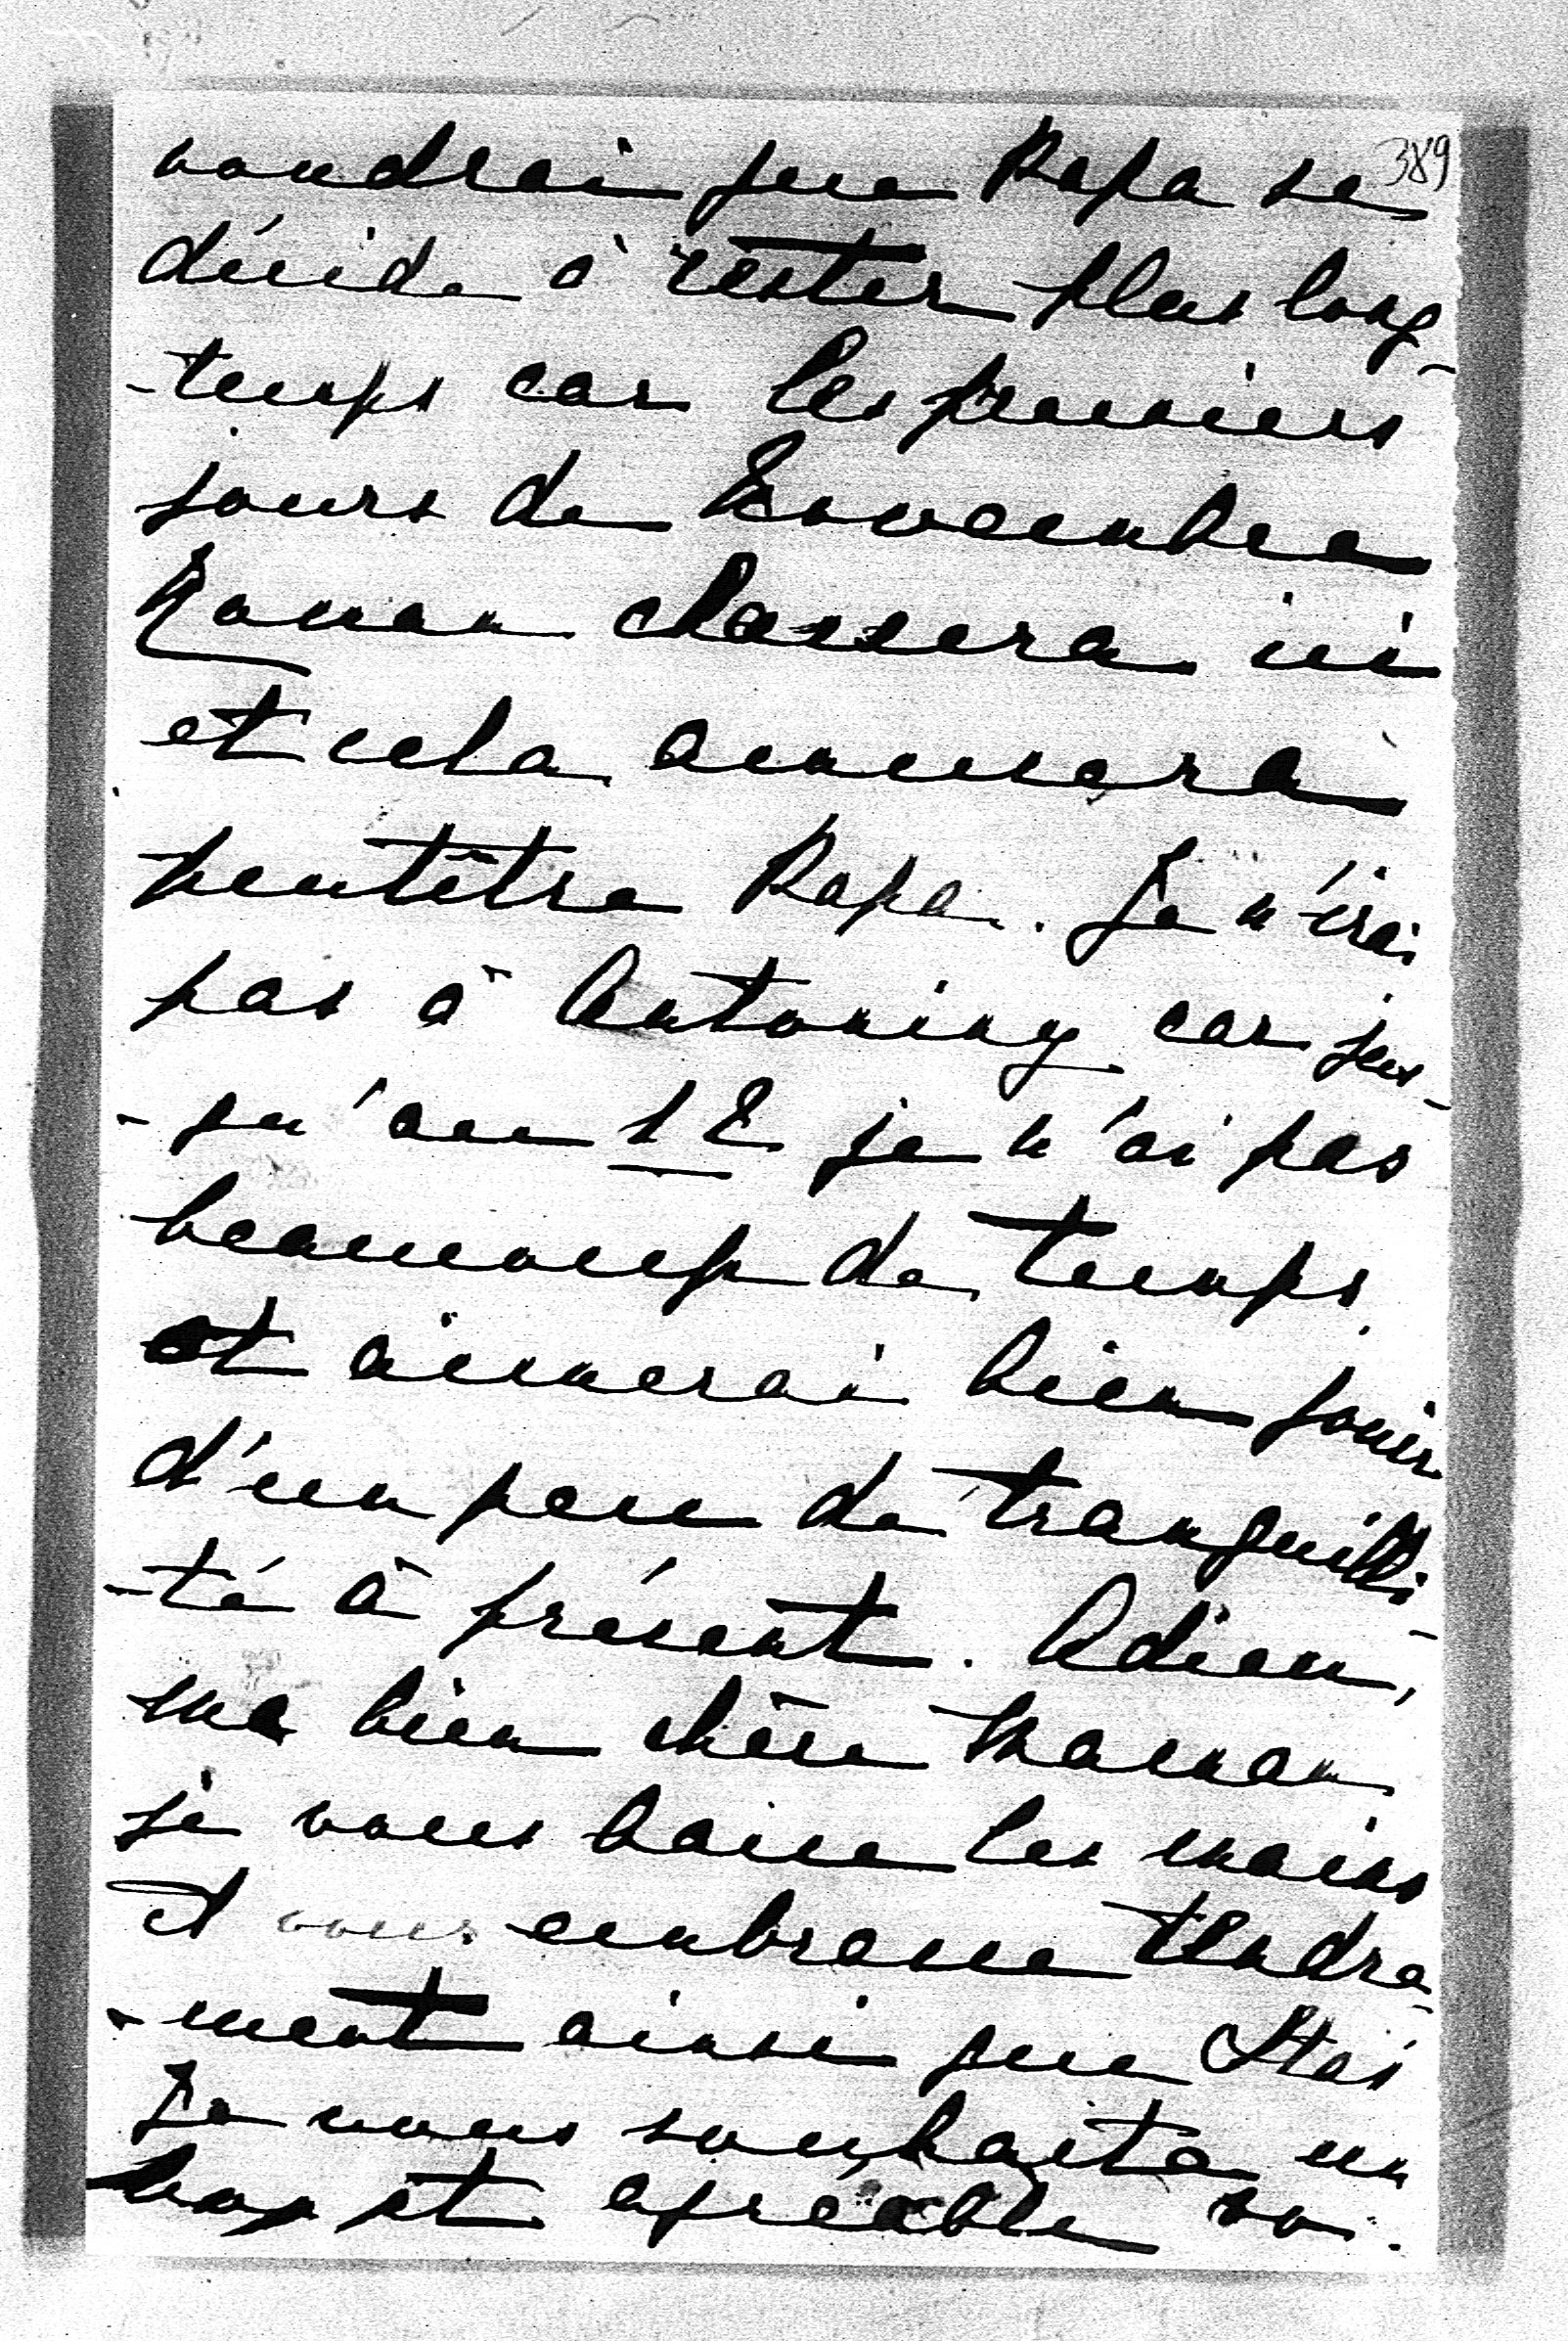 389
voudrai que Papa se
décide à rester plus long-
-temps car les premiers
jours de Novembre
Roman chassera ici
et cela amusera
peutêtre Papa. Je n'irai
pas à Antoniny car jus-
-qu'au 12 je n'ai pas
beaucoup de temps
et aimerai bien jouir
d'un peu de tranquilli-
-té à présent. Adieu,
ma bien chère Maman
je vous baise les mains
et vous embrasse tendre-
-ment ainsi que Staś
Je vous souhaite un
bon et agréable vo-